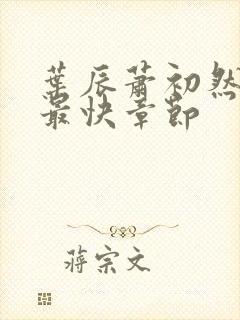 葉辰蕭初然
最快章節
蔣宗文